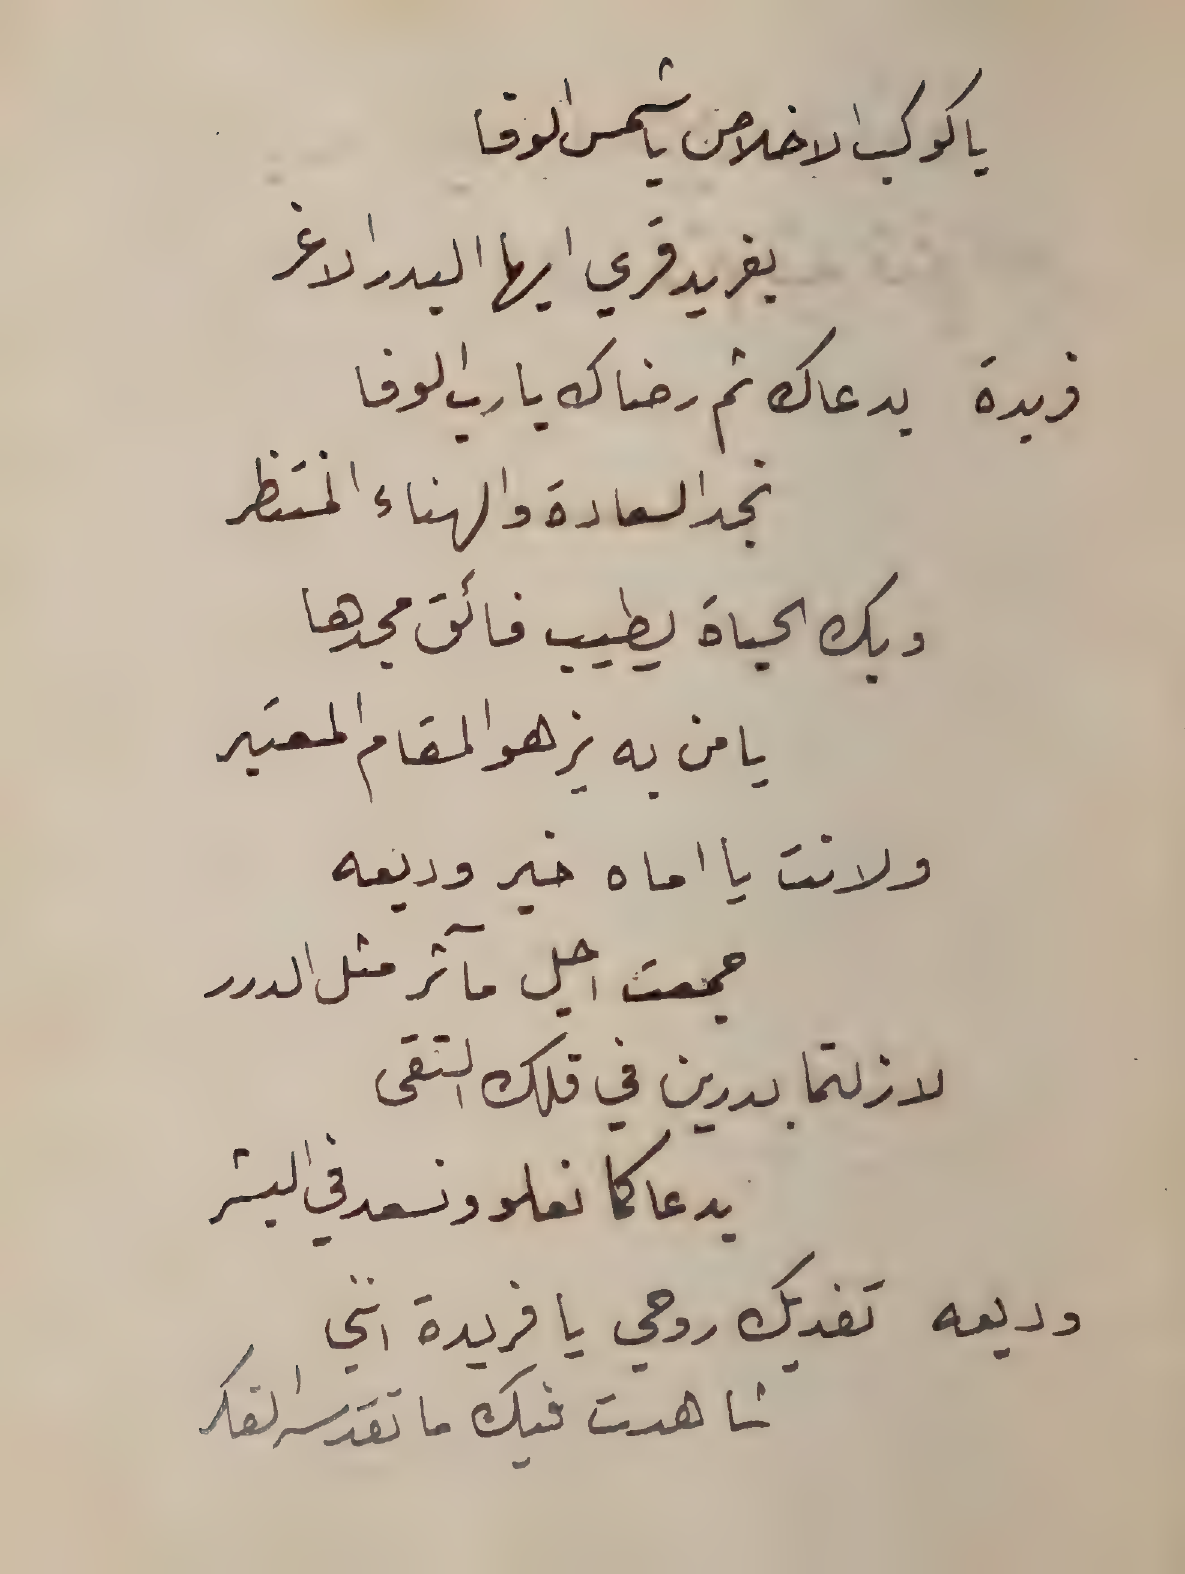 ياكوكب الاخلاص ياشمس الوفا
بفريد قري ايها البدر الاغر
فريدة يدعاك ثم رضاك يارب الوفا
نجد السعادة والهناء المنتظر
وبك الحياة يطيب فائق مجدها
يا من به يزهو المقام المعتبر
ولانت يا اماه خير وديعه
جمعت اجل مآثر مثل الدرر
لازلتما بدرين في فلك التقى
بدعاكما نعلو ونسعد في البشر
وديعه تفديك روحي يا فريدة انني
شاهدت فيك ما تقدسه الفكر